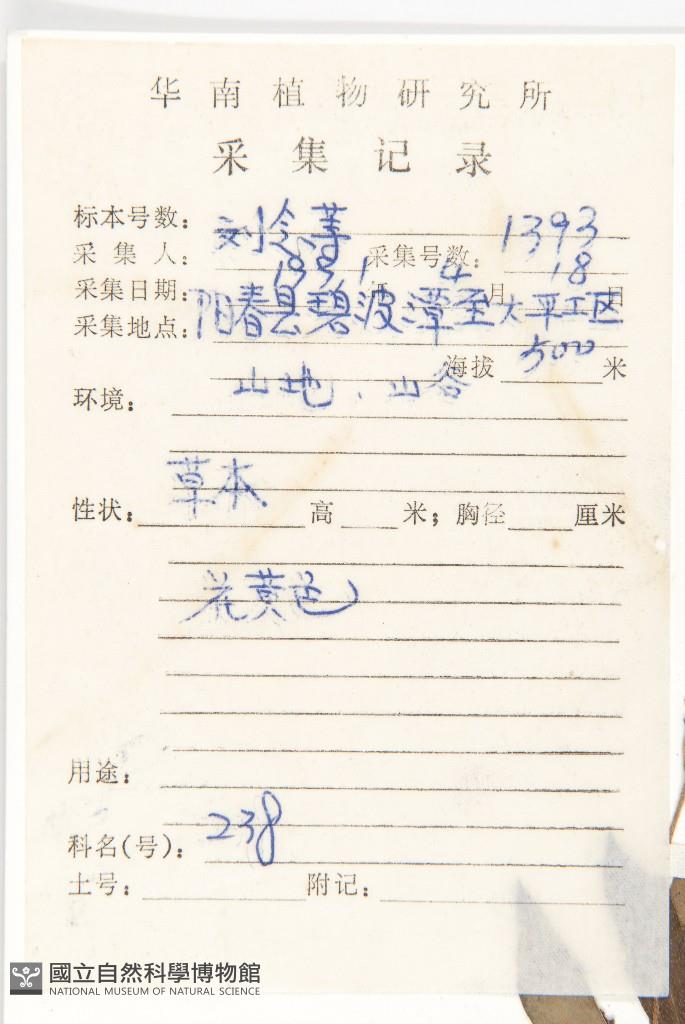 华南植物研究所
采集记录
标本号数：
采集人：刘念等 采集号数：1393
采集日期：1991年4月18日
采集地点：阳春县碧波潭至太平工区
海拔500米
环境：山地、山谷
性状：草本 高 米；胸径 厘米
花黄色
用途：
科名(号)：238
土号： 附记：
國立自然科學博物館
NATIONAL MUSEUM OF NATURAL SCIENCE